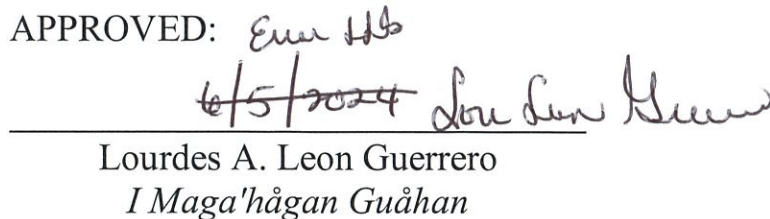 APPROVED:
6/5/2024 Lou Leon Guerrero
Lourdes A. Leon Guerrero
I Maga'hågan Guåhan